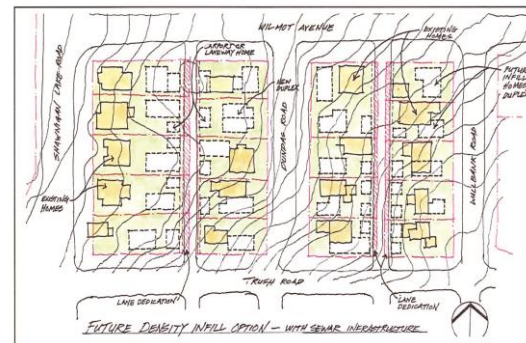 WILMOT AVENUE
SHAWNIGAN LAKE ROAD
CARPORT OR
LANEWAY HOME
EXISTING
HOMES
NEW
DUPLEX
FUTURE
INFILL
HOMES
DUPLEX
DUNDAS ROAD
WALLBANK ROAD
EXISTING
HOMES
TRUSH ROAD
LANE DEDICATION
LANE
DEDICATION
FUTURE DENSITY INFILL OPTION – WITH SEWAR INFRASTRUCTURE